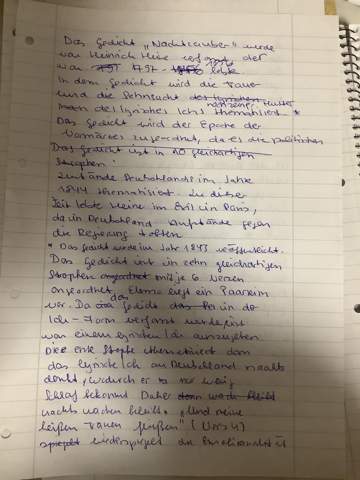 Das Gedicht „Nachtzauber" wurde
von Heinrich Heine verfasst, der
von 1797 - 1856 lebte
In dem Gedicht wird die Trauer
und die Sehnsucht nach seiner Mutter
des lyrischen Ichs thematisiert *
Das Gedicht wird der Epoche der
Vormärzes zugeordnet, da es die politischen
Das Gedicht ist in 10 gleichartigen
Strophen
Zustände Deutschlands im Jahre
1844 thematisiert. Zu dieser
Zeit lebte Heine im Exil in Paris,
da in Deutschland Aufstände gegen
die Regierung tobten.
* Das Gedicht wurde im Jahr 1843 veröffentlicht.
Das Gedicht ist in zehn gleichartigen
Strophen mit je Versen
angeordnet. Ebenso liegt ein Paarreim
vor. Da das Gedicht in der
Ich-Form verfasst wurde, ist
von einem lyrischen Ich auszugehen.
Die erste Strophe thematisiert dann
das lyrische Ich an Deutschland nachts
denkt, wodurch er so wenig
Schlaf bekommt. Daher
nachts wachen bleibt. „Und meine
heißen Tränen fließen" (Vers 4)
wiederspiegelt die Emotionalität